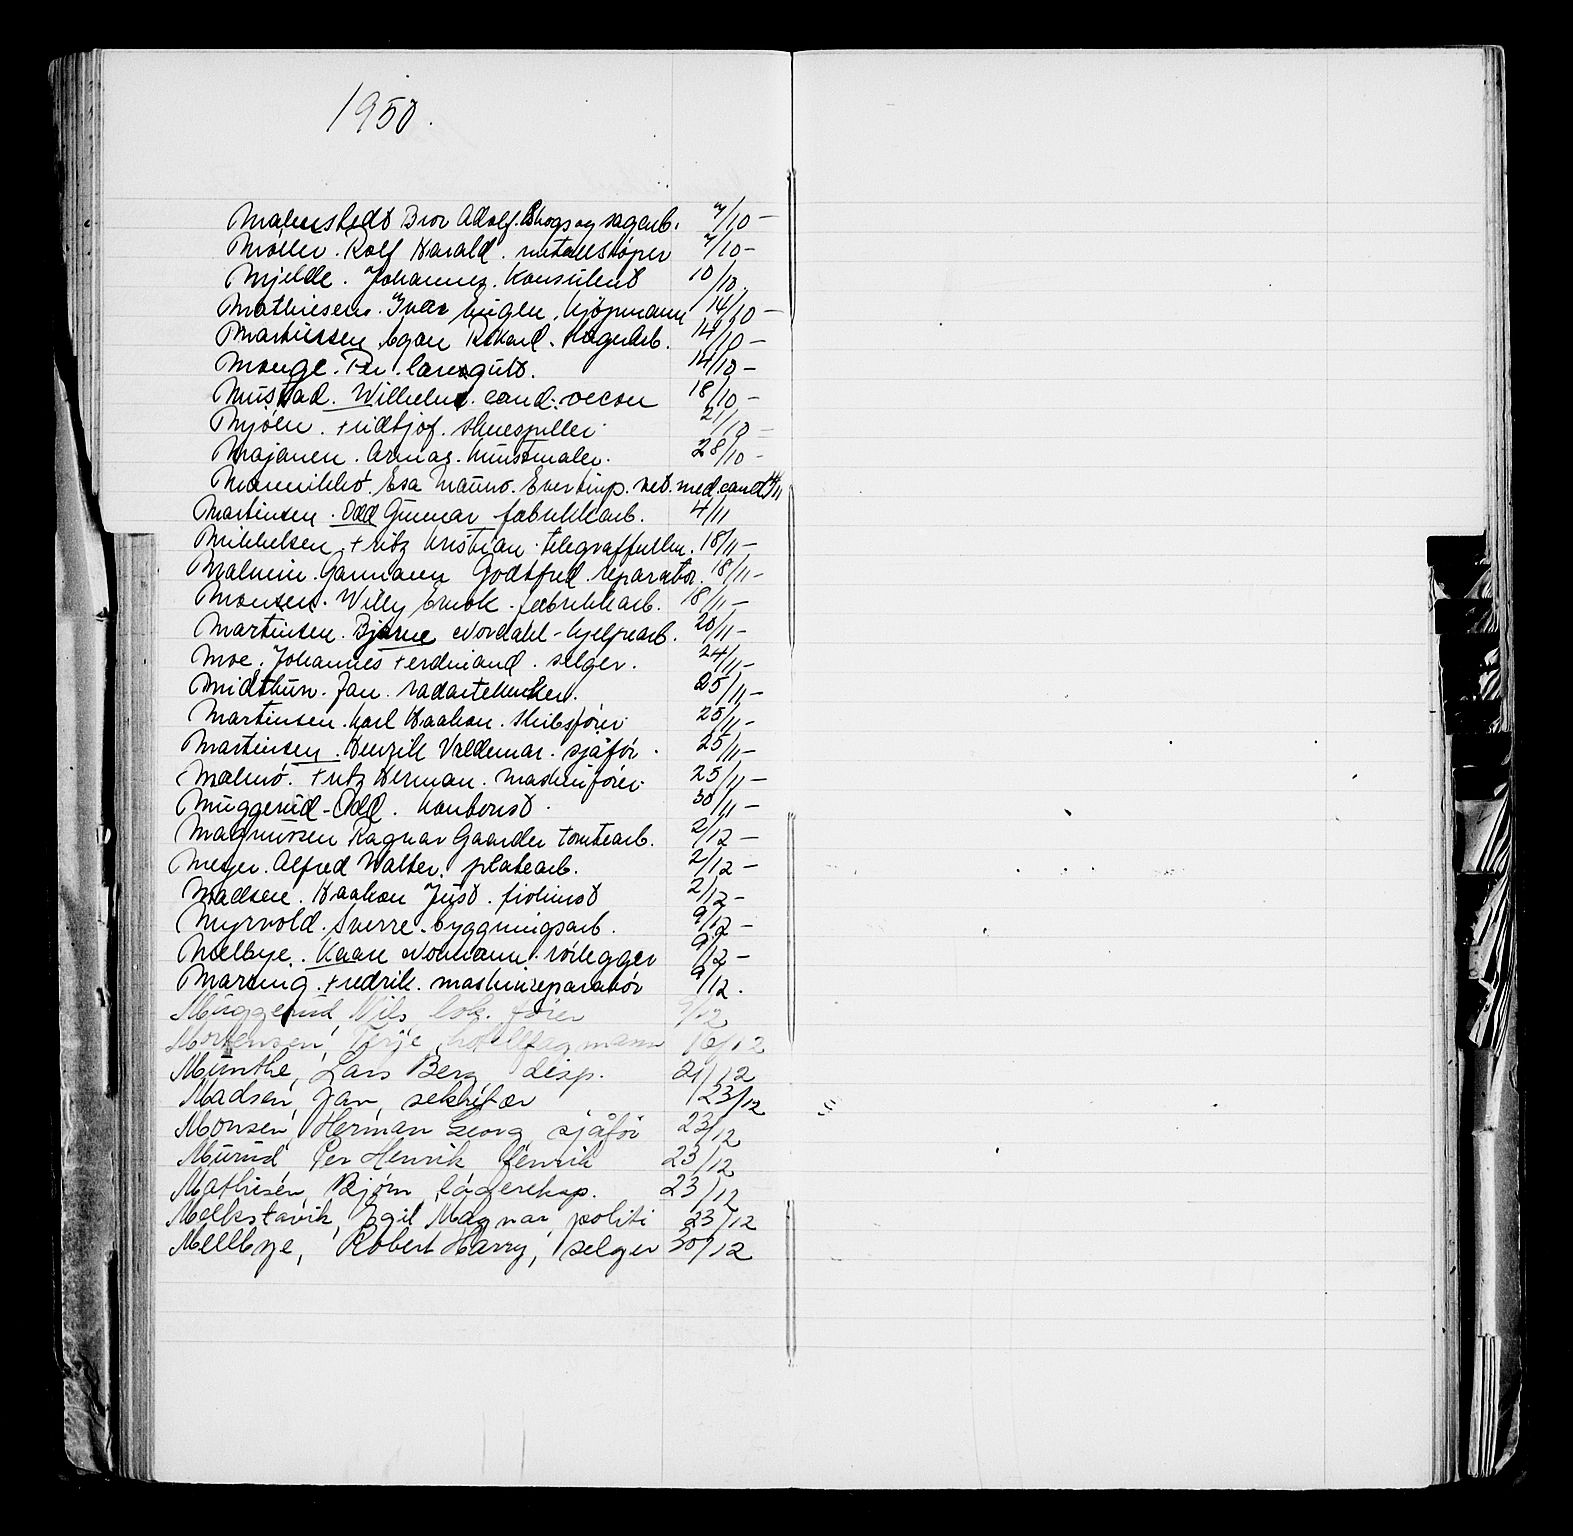 1950.
Malmstedt Bror Adolf. Skogs og sagarb. 7/10 –
Møller. Rolf Harald. metallstøper 7/10 –
Mjelde. Johannes. Konsulent 10/10.
Mathiesen. Ivar Eugen. kjøpmann 14/10 –
Martinssen Egon Rikard. lagerarb. 14/10 –
Monge. Per. 14/10 –
Mustad. Wilhelm. cand. oecon 18/10 –
Mjøen. Fridtjof. skuespiller. 21/10 –
Majanen. Armas. kunstmaler. 28/10 –
Mannikkö. Esa Mauno. med. cand. 4/11
Martinsen. Odd Gunnar fabrikkarb. 4/11
Mikkelsen Fritz Kristian. telegraffullm. 18/11 –
Malmin. Garmann Godtfred. reparatør. 18/11 –
Monsen. Willy Enok. fabrikkarb. 18/11 –
Martinsen. Bjarne Nordahl – hjelpearb. 20/11 –
Moe. Johannes Ferdinand. selger. 24/11 –
Midthun. Jan. radartekniker. 25/11 –
Martinsen. Karl Haakon. skibsfører. 25/11 –
Martinsen. Henrik Valdemar. sjåfør. 25/11 –
Malmö. Fritz Herman. maskinfører. 25/11 –
Muggerud – Odd. kontorist. 30/11 –
Magnussen Ragnar Gaarder tomtearb. 2/12 –
Meyer. Alfred Walter. platearb. 2/12 –
Madsen. Haakon Just. fiolinist 2/12 –
Myrvold. Sverre. byggningsarb. 9/12 –
Melbye. Kaare Normann. rørlegger 9/12 –
Maring. Fredrik. maskinreparatør 9/12.
Muggerud Nils lok. fører 9/12
Mortensen, Terje, hotellfagmann 16/12
Munthe, Lars Berg disp. 21/12
Madsen, Jan, sekretær 23/12
Monsen, Herman Georg sjåfør 23/12
Murud Per Henrik fenrik 23/12
Mathisen, Bjørn lagereksp. 23/12
Melkstavik, Egil Magnar politi 23/12
Mellbye, Robert Harry, selger 30/12